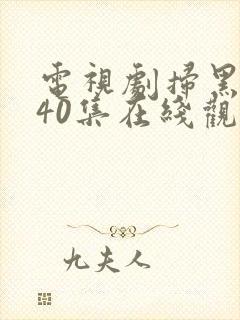 電視劇掃黑
40集在綫觀
九夫人